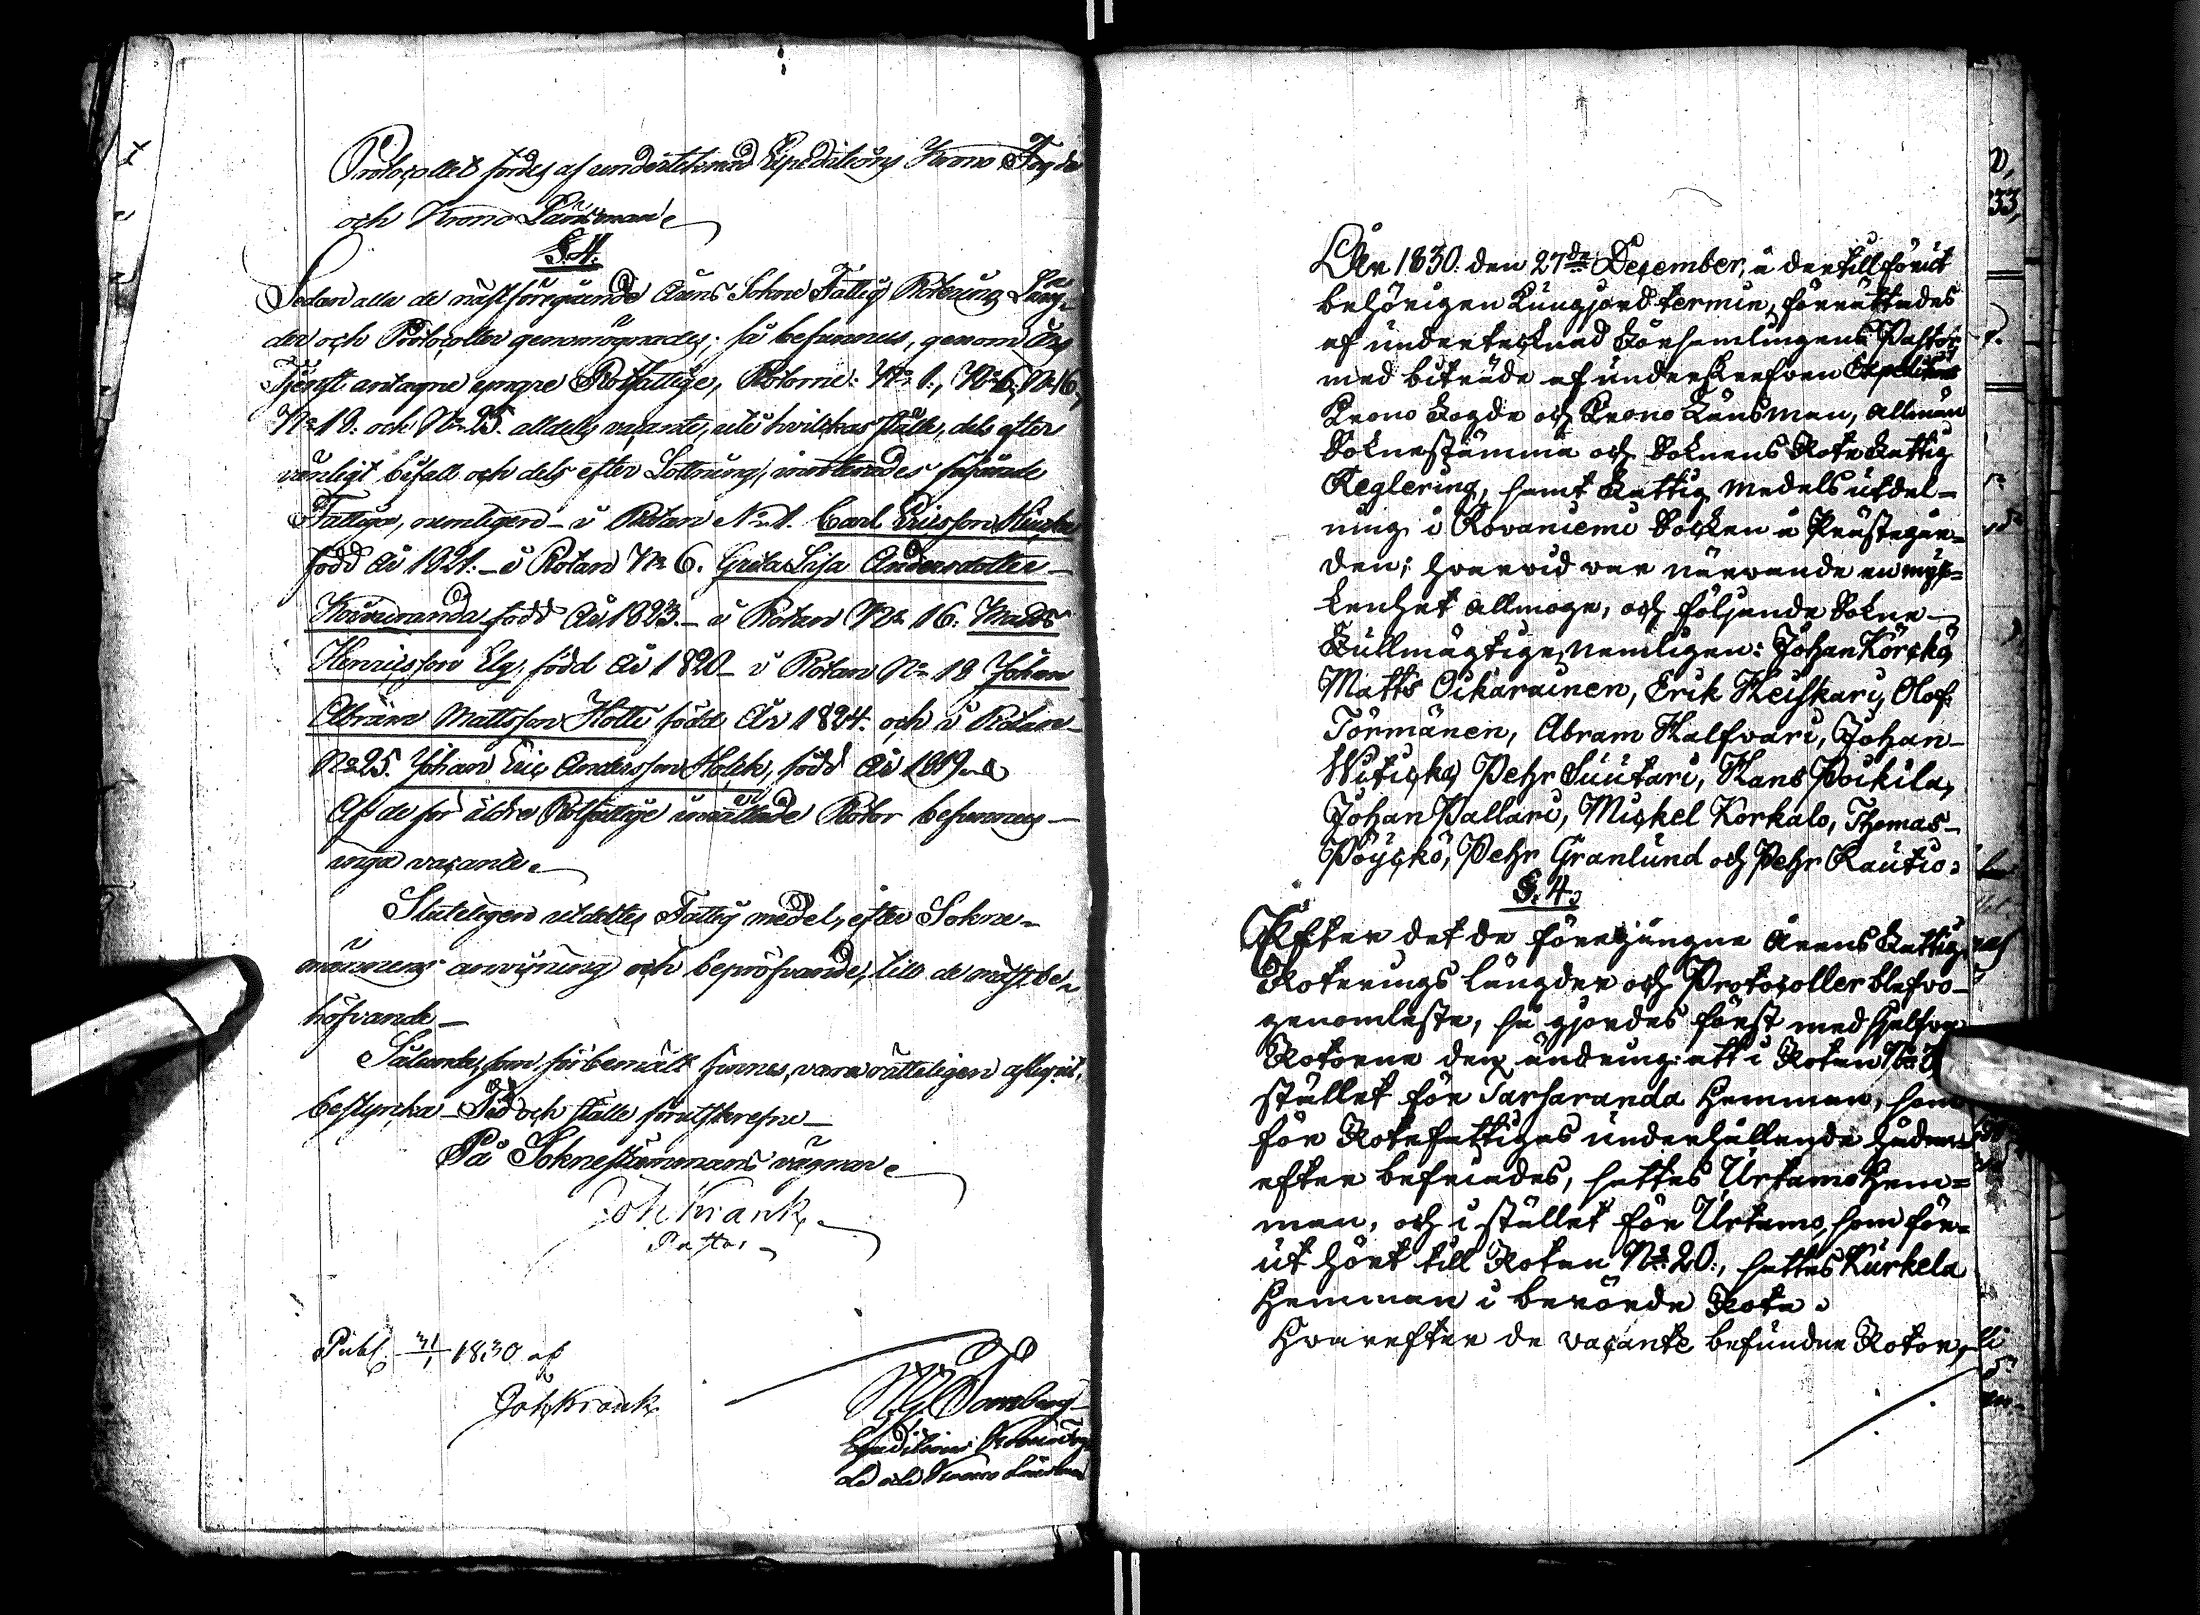 Protocollet fördes af undertecknad Expeditions Krono Fogde
och Krono Länsman
§.1.
Sedan alla de nästföregående Årens Sokne Fattig Roterings Läng-
der och Protocoller genomögnades; så befunnos, genom
antagne yngre Rotfattige, Rotorne: No 1., No 6, No 16,
No 18. och No 25. alldeles vacante, uti hvilkas ställe, dels efter
vänligt bifall och dels efter Lottning, inroterades följande
Fattige, nemligen i Rotan No 1. Carl Ericsson
född År 1821. i Rotan No 6. Greta Lisa Andersdotter
född År 1823. i Rotan No 16. Matts
Henricsson Elg, född År 1820 i Rotan No 18 Johan
Abram Mattsson född År 1824. och i Rotan
No 25. Johan Eric Andersson född År 1819
Af de för äldre Rotfattige inrättade Rotor befunnos
inga vacante
Sluteligen utdeltes Fattig medel, efter Sokne-
männens anvisning och bepröfvande, till de mäst be-
höfvande
Sålunda, som förbemält finnes, vara rätteligen aflupit,
bestyrcka Tid och ställe förutskrefne
På Soknestämmans vägnar
Joh. Krank
Pastor
Publ. 31/1 1830 af
Joh. Krank
Expeditions Krono Fog-
de och Krono Länsman
År 1830. den 27de December, å dertill förut
behörigen kungjord termin, förrättades
af undertecknad Församlingens Pastor
med biträde af underskrefven Expeditions
Krono Fogde och Krono Länsman, allmän
Soknestämma och Soknens Rote Fattig
Reglering, samt Fattig Medels utdel=
ning i Rovaniemi Socken å Prästegår=
den; hvarvid var närvande en myc=
kenhet Allmoge, och följande Sokne
Fullmägtige, nemligen: Johan Körckö
Matts Oikarainen, Erik Heiskari, Olof
Törmänen, Abram Halfvari, Johan
Witicka, Pehr Suutari, Hans Poikila,
Johan Pallari, Mickel Korkalo, Thomas
Pöyckö, Pehr Granlund och Pehr Rautio
§.1.
Efter det de föregångne Årens Fattig
Roterings längder och Protocoller blefvo
genomläste, så gjordes först med sjelfva
Rotorne den ändring: att i Rotan No
stället för Tarsaranda Hemman, som
för Rotefattiges underhållande hädan
efter befriades, sattes Urtamo Hem=
man, och i stället för Urtamo, som för=
ut hört till Rotan No 20., sattes Kurkela
Hemman i berörde Rota.
Hvarefter de vacante befundne Rotor,